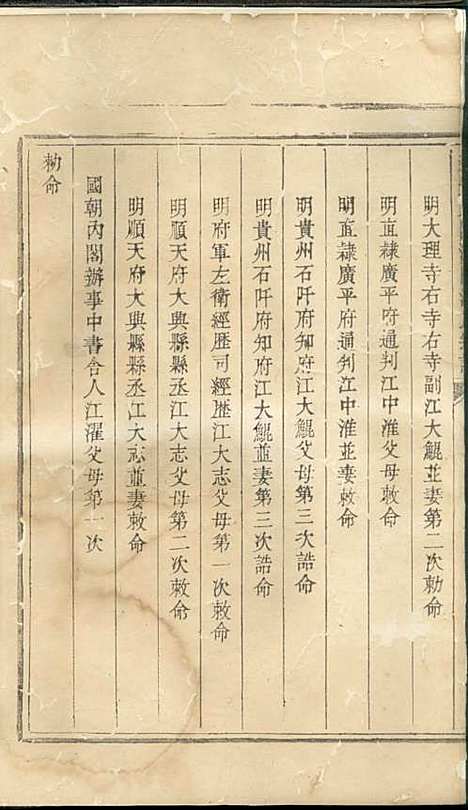 明大理寺右寺右寺副江大鯤並妻第二次勅命
明直隸廣平府通判江中淮父母敕命
明直隸廣平府通判江中淮並妻敕命
明貴州石阡府知府江大鯤父母第三次誥命
明貴州石阡府知府江大鯤並妻第三次誥命
明府軍左衛經歷司經歷江大志父母第一次敕命
明順天府大興縣縣丞江大志父母第二次敕命
明順天府大興縣縣丞江大志並妻敕命
國朝內閣辦事中書舍人江濯父母第一次
勅命